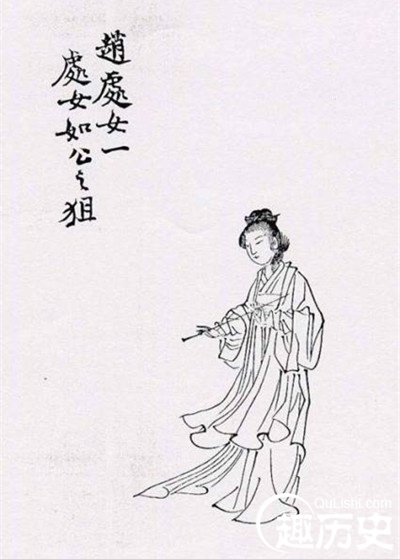 趙處女一
處女如公之狙
QuLishi.com
趣历史